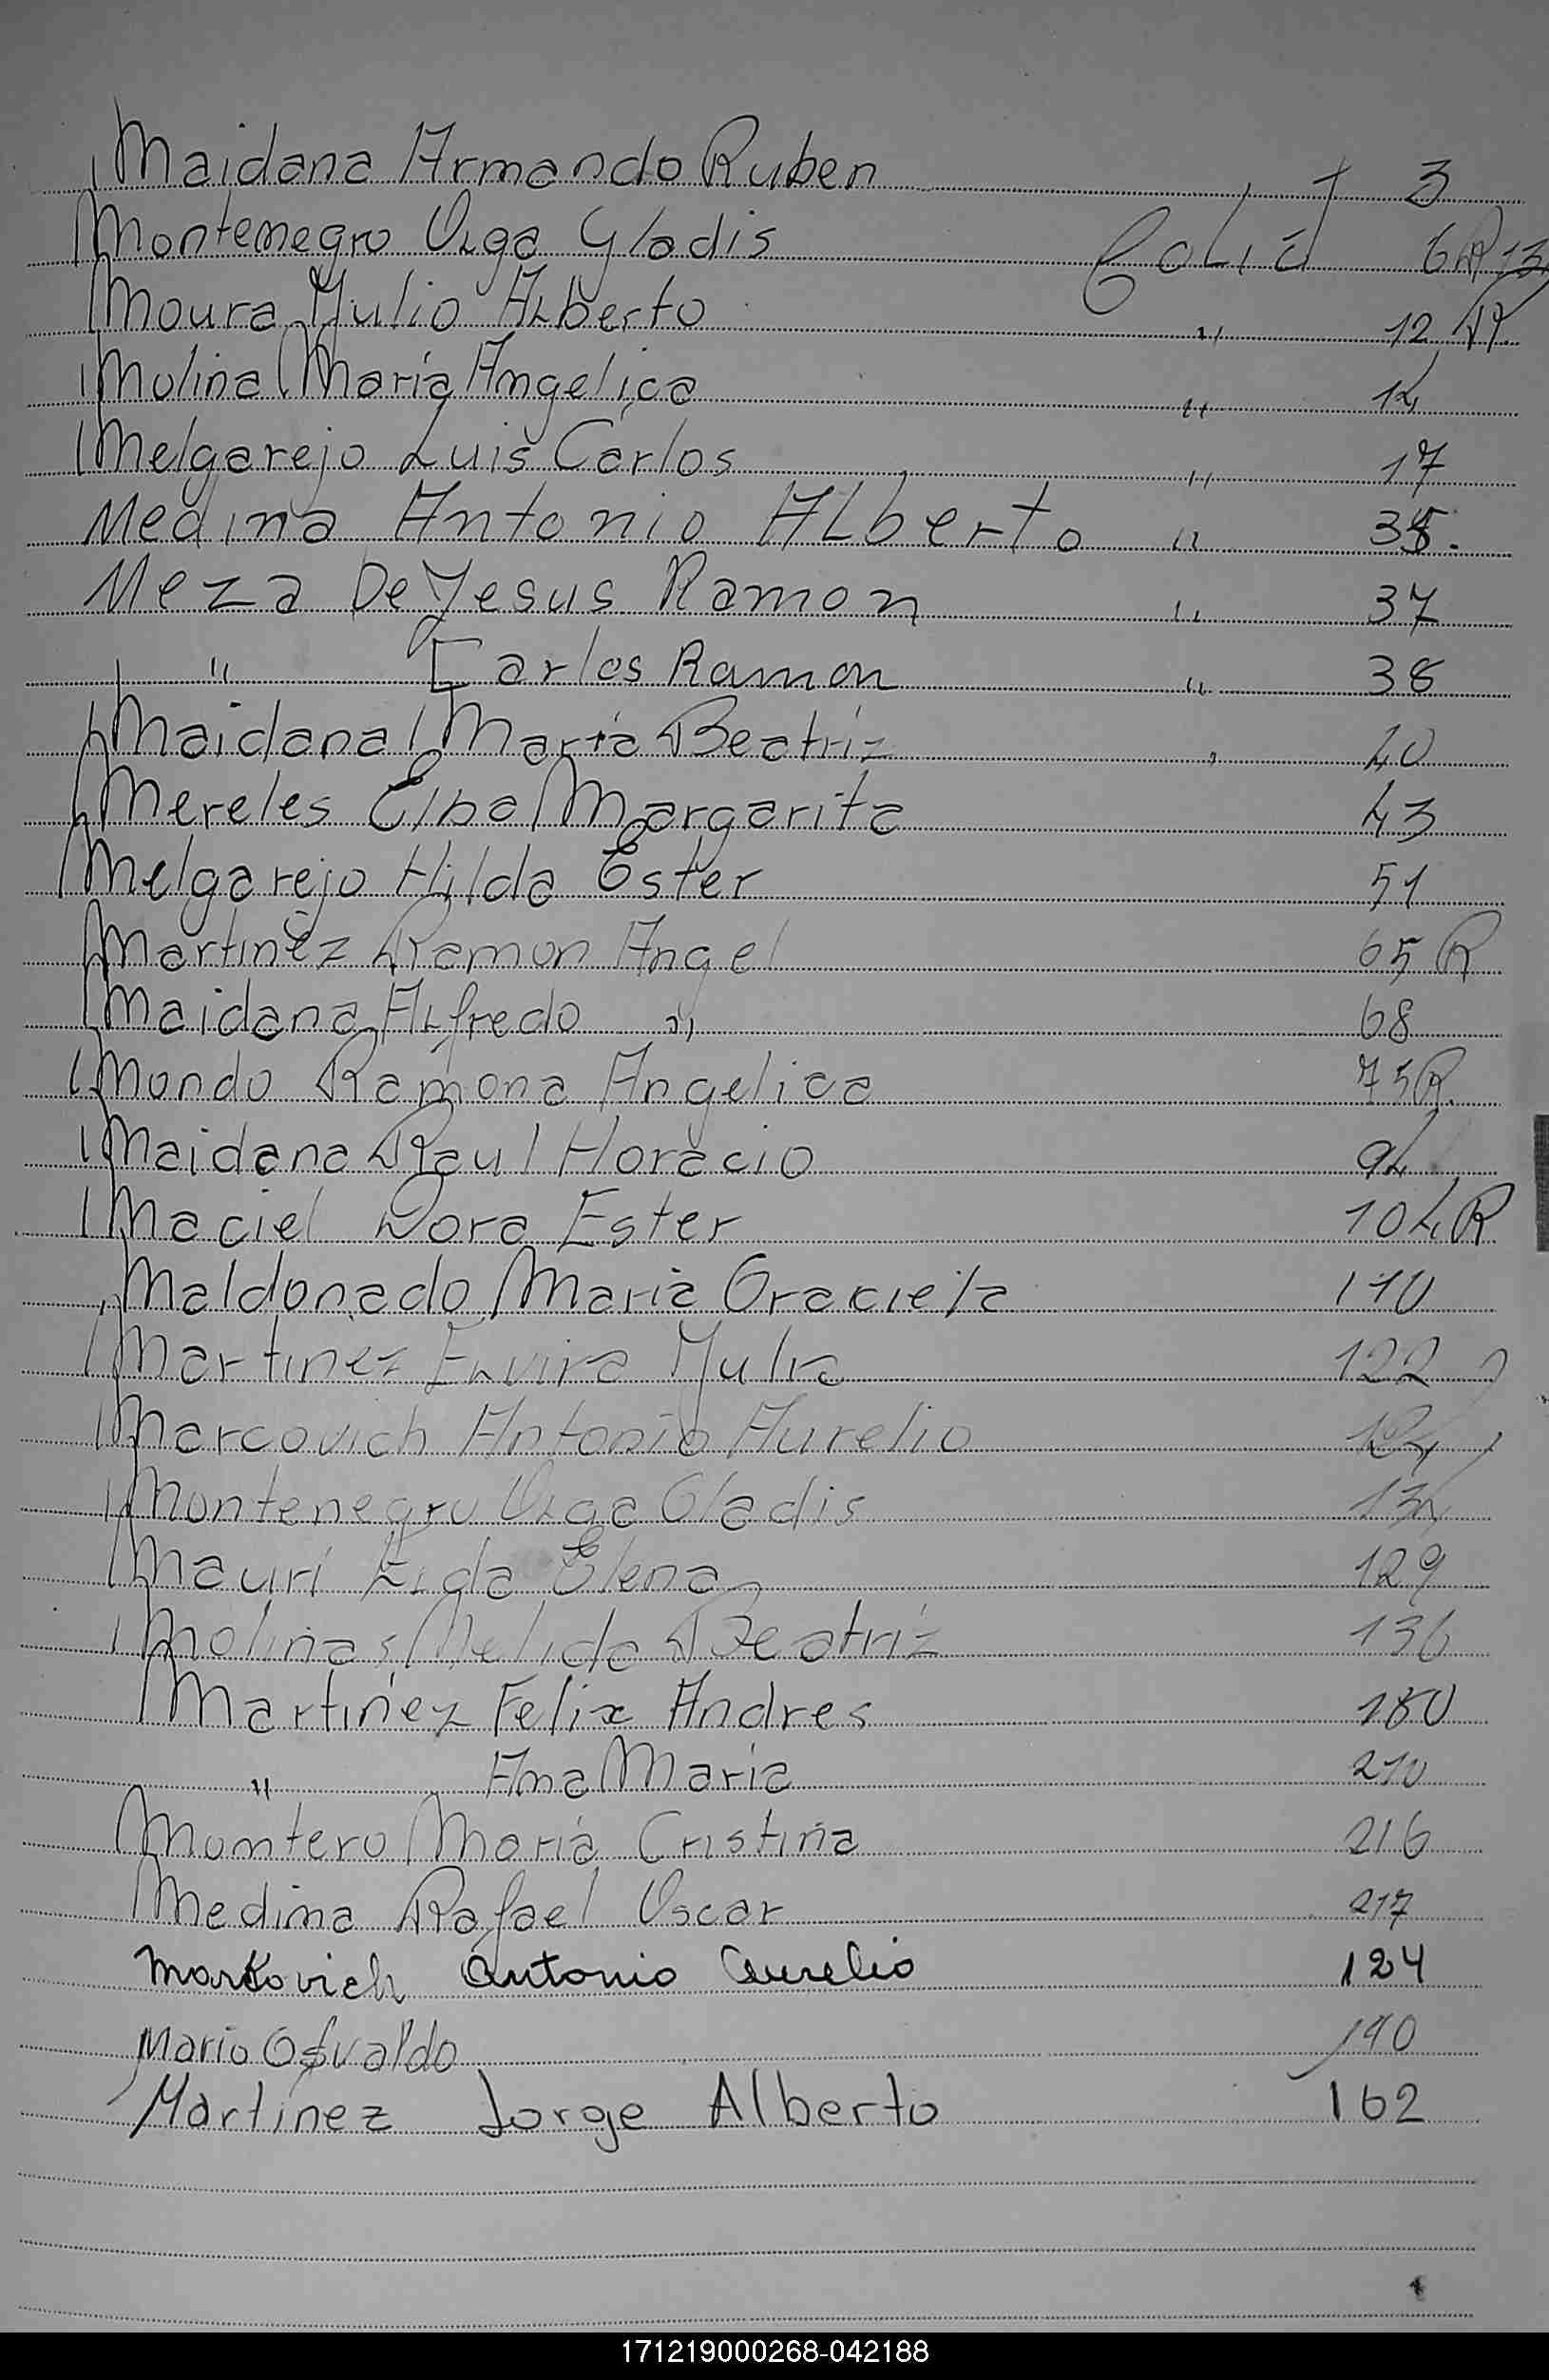 Maidana Armando Ruben 3
Montenegro Olga Gladis Folio 6R
Moura Julio Alberto " 12 R
Molina Maria Angelica " 14
Melgarejo Luis Carlos " 17
Medina Antonio Alberto "
Meza De Jesus Ramon " 37
" Carlos Ramon " 38
Maidana Maria Beatriz " 40
Mereles Elba Margarita 43
Melgarejo Hilda Ester 51
Martinez Ramon Angel 65 R
Maidana Alfredo " 68
Mondo Ramona Angelica 75 R.
Maidana Raul Horacio 94
Maciel Dora Ester 104 R
Maldonado Maria Graciela 110
Martinez Elvira Julia 122
Marcovich Antonio Aurelio 124
Montenegro Olga Gladis 134
Mauri Elena 129
Molinas Nelida Beatriz 136
Martinez Felix Andres 180
" Ana Maria 210
Montero Maria Cristina 216
Medina Rafael Oscar 217
Markovich Antonio Aurelio 124
Mario Osvaldo 190
Martinez Jorge Alberto 162
171219000268-042188